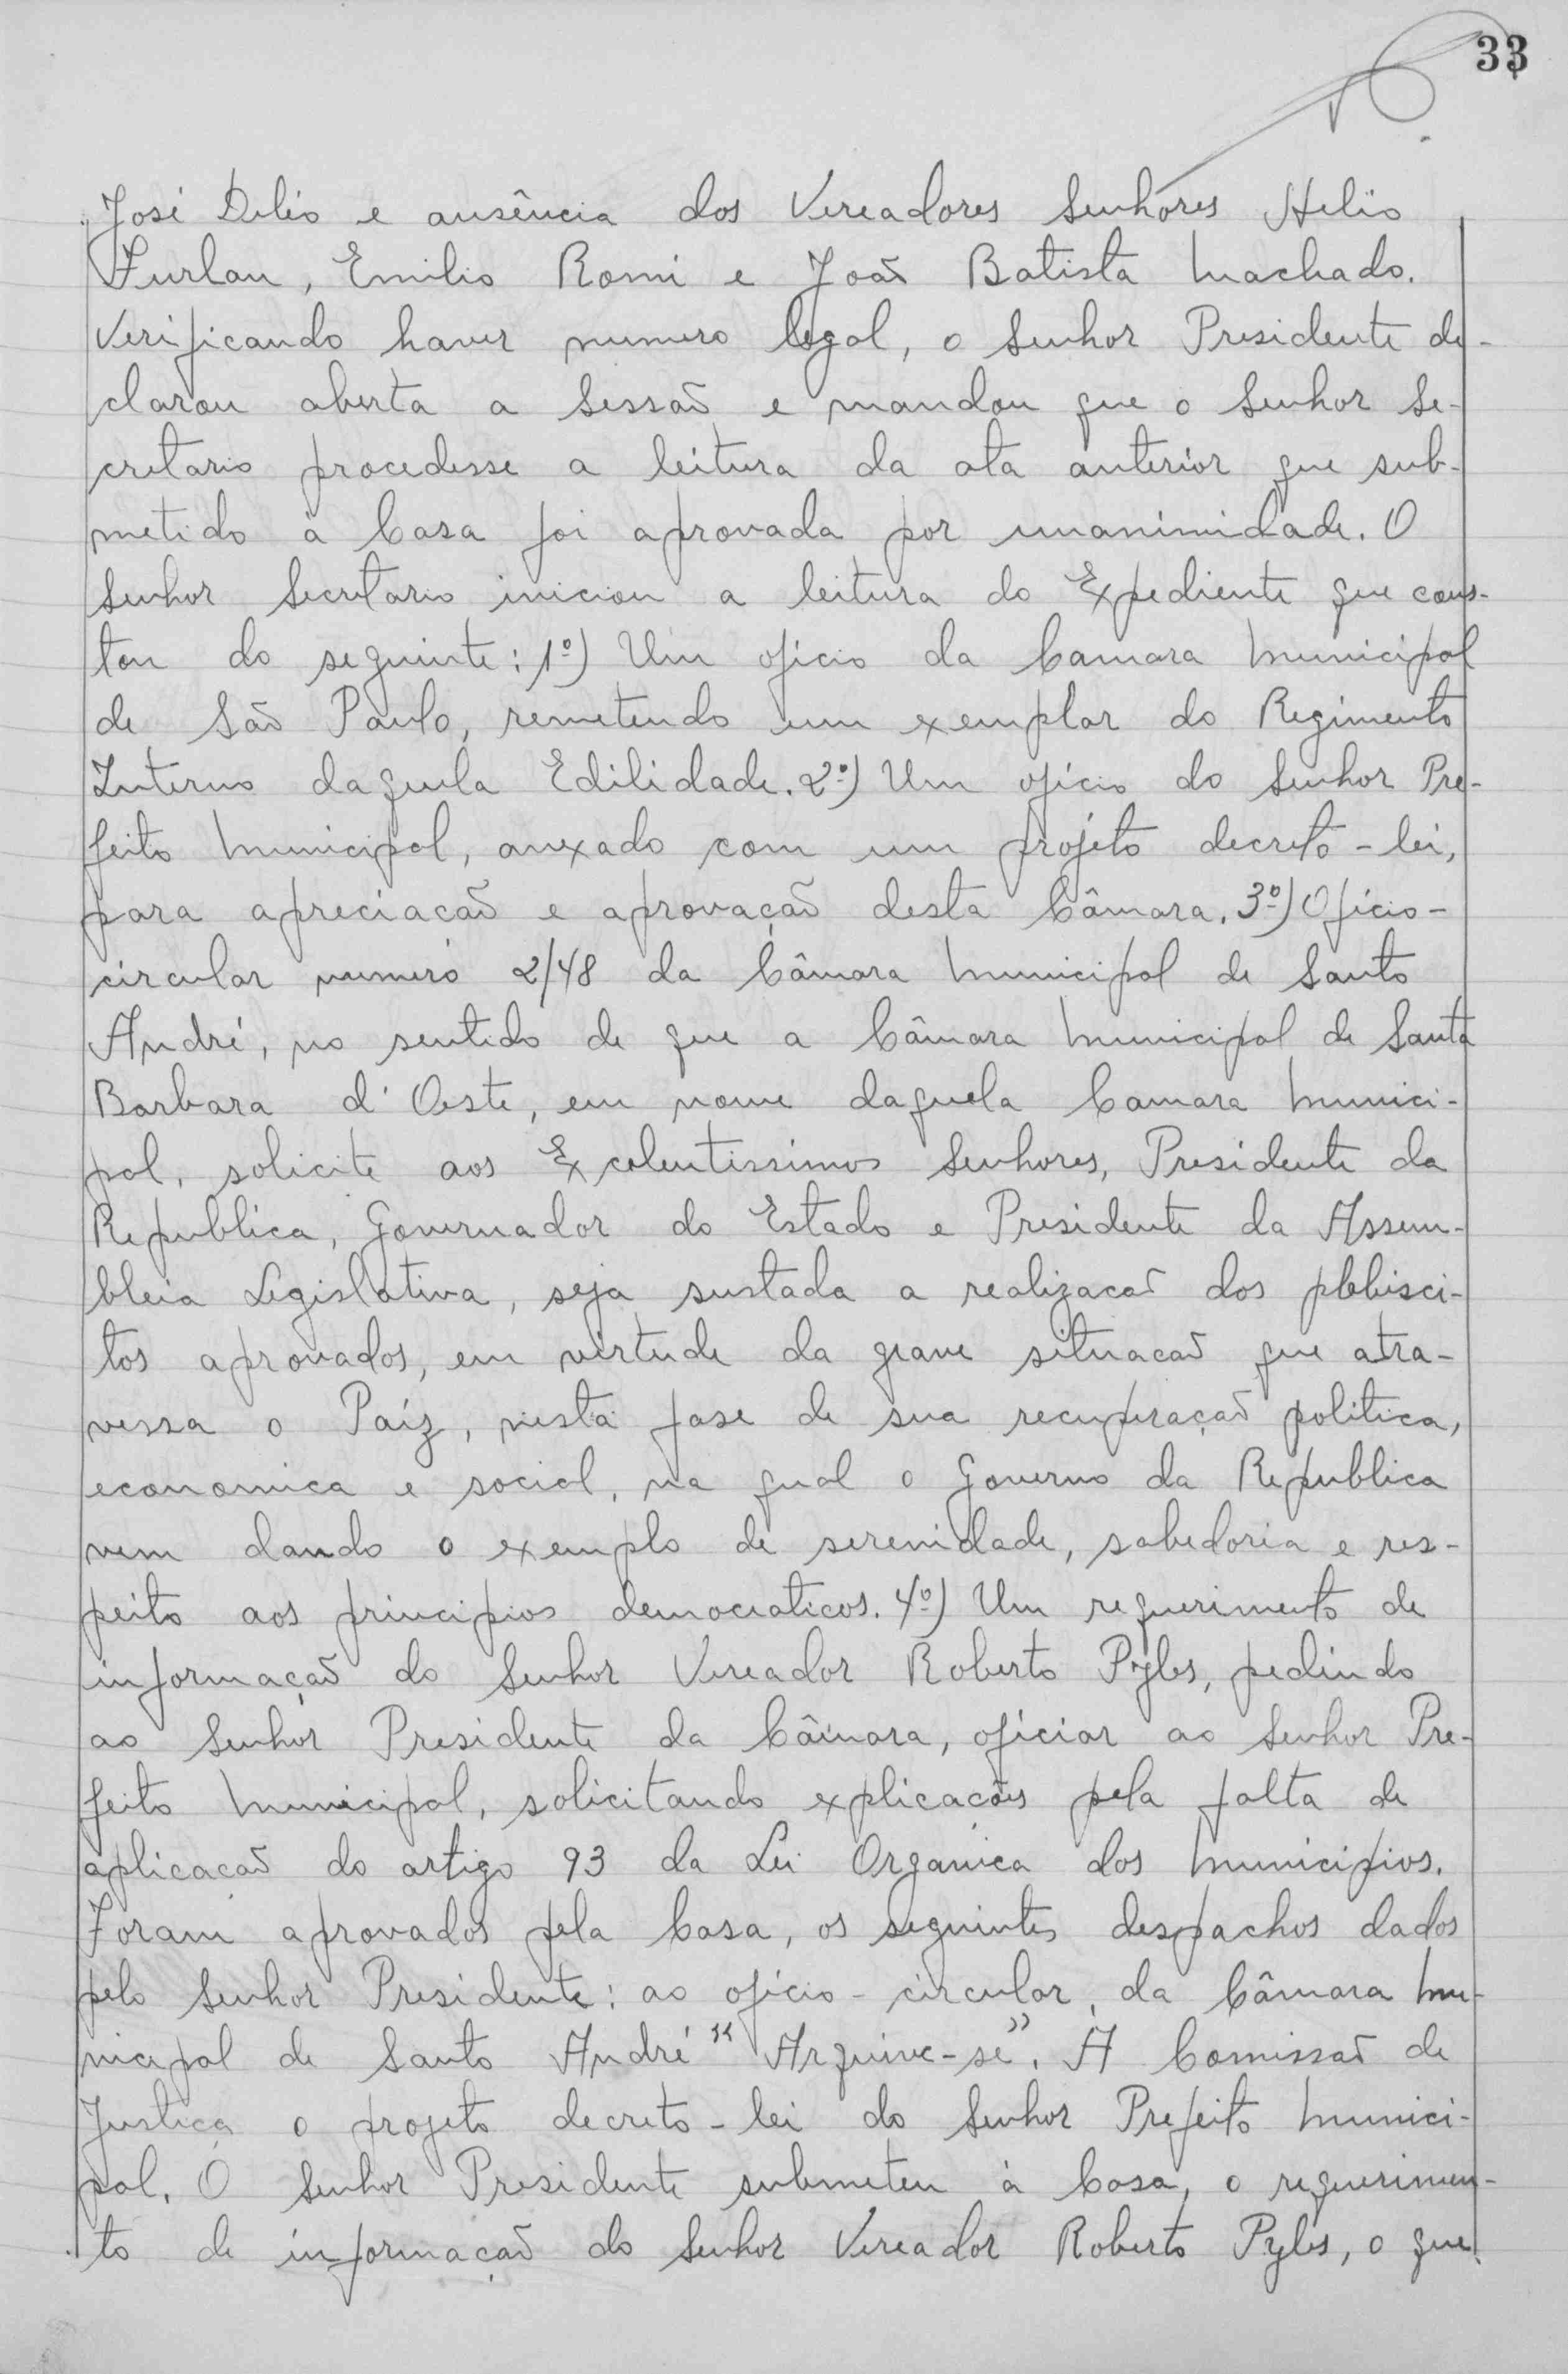 33
José Delio e ausência dos Vereadores Senhores Helio
Furlan, Emilio Romi e João Batista Machado.
Verificando haver numero legal, o Senhor Presidente de-
clarou aberta a Sessão e mandou que o Senhor Se-
cretario procedesse a leitura da ata anterior que sub-
metido à Casa foi aprovada por unanimidade. O
Senhor Secretario iniciou a leitura do Expediente que cons-
tou do seguinte: 1º) Um oficio da Camara Municipal
de São Paulo, remetendo um exemplar do Regimento
Interno daquela Edilidade. 2º) Um oficio do Senhor Pre-
feito Municipal, anexado com um projeto decreto-lei,
para apreciacão e aprovação desta Câmara. 3º) Oficio-
circular numero 2/48 da Câmara Municipal de Santo
André, no sentido de que a Câmara Municipal de Santa
Barbara d'Oeste, em nome daquela Camara Munici-
pal, solicite aos Excelentissimos Senhores, Presidente da
Republica, Governador do Estado e Presidente da Assem-
bleia Legislativa, seja sustada a realizacão dos plebisci-
tos aprovados, em virtude da grave situacão que atra-
vessa o Paíz, nesta fase de sua recuperação politica,
economica e social, na qual o Governo da Republica
vem dando o exemplo de serenidade, sabedoria e res-
peito aos principios democraticos. 4º) Um requerimento de
informação do Senhor Vereador Roberto Pyles, pedindo
ao Senhor Presidente da Câmara, oficiar ao Senhor Pre-
feito Municipal, solicitando explicacões pela falta de
aplicacão do artigo 93 da Lei Organica dos Municipios.
Foram aprovados pela Casa, os seguintes despachos dados
pelo Senhor Presidente: ao oficio-circular, da Câmara Mu-
nicipal de Santo André "Arquive-se". A Comissão de
Justiça o projeto decreto-lei do Senhor Prefeito Munici-
pal. O Senhor Presidente submeteu à Casa, o requerimen-
to de informação do Senhor Vereador Roberto Pyles, o que